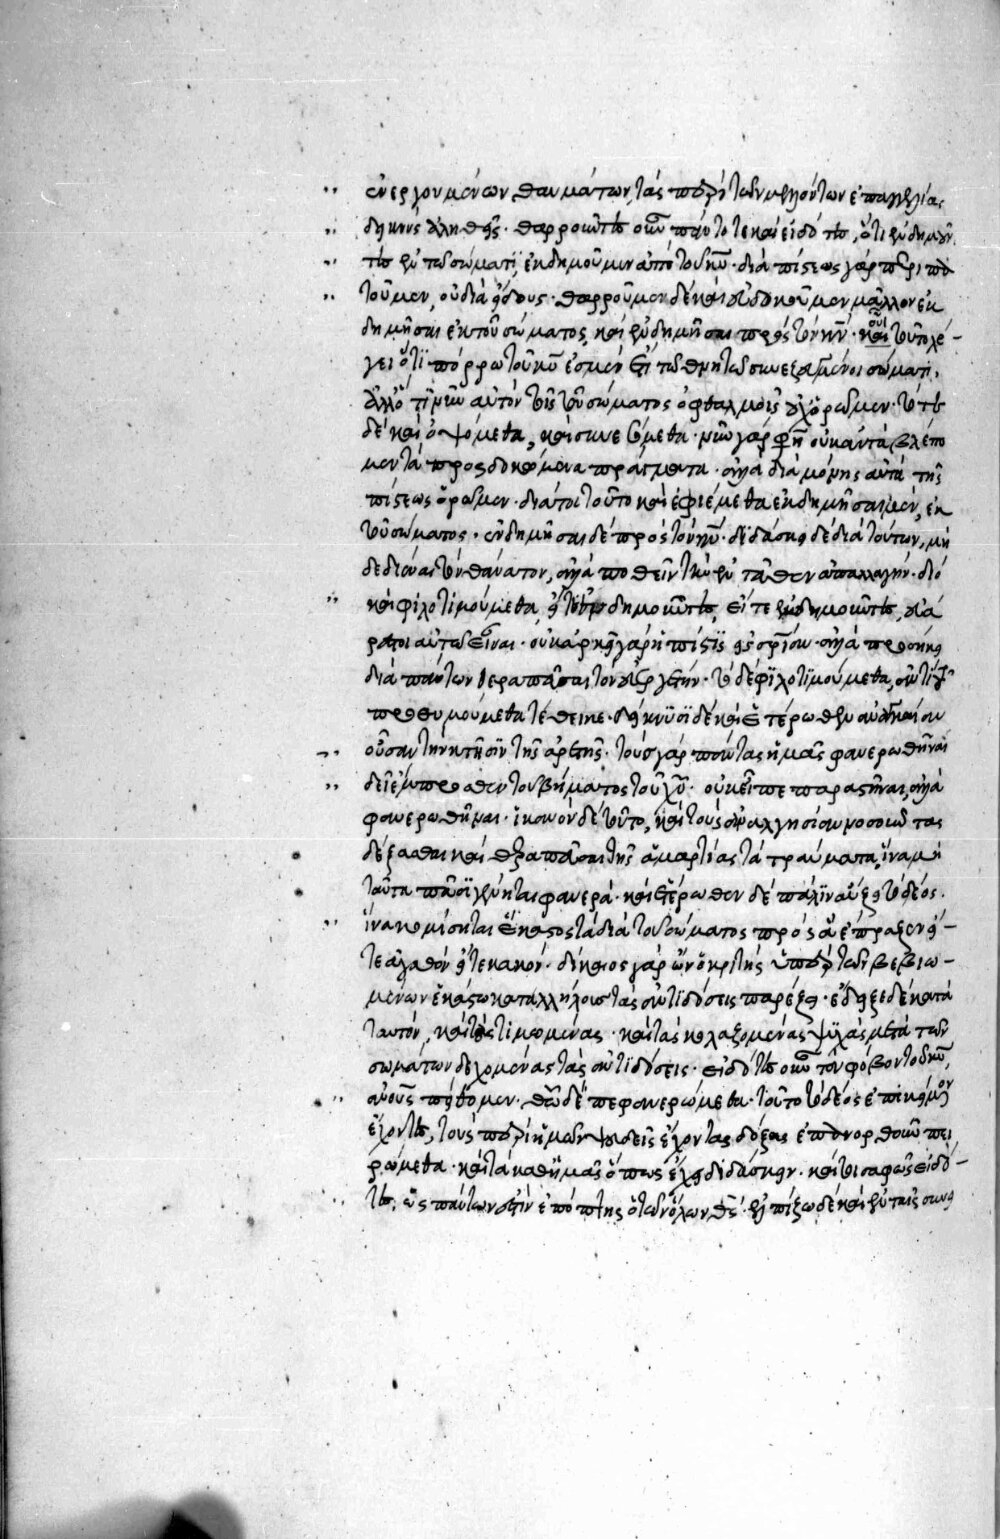 ἐνεργουμένων θαυμάτων, τὰς περὶ τῶν μελλόντων ἐπαγγελίας
δεικνὺς ἀληθεῖς. θαρροῦντες οὖν πάντοτε καὶ εἰδότες, ὅτι ἐνδημοῦν
τες ἐν τῷ σώματι, ἐκδημοῦμεν ἀπὸ τοῦ κυ. διὰ πίστεως γὰρ περιπα
τοῦμεν, οὐ διὰ εἴδους. θαρροῦμεν δὲ καὶ εὐδοκοῦμεν μᾶλλον ἐκ
δημῆσαι ἐκ τοῦ σώματος, καὶ ἐνδημῆσαι πρὸς τὸν κν. καὶ τοῦτο λέ
γει ὅτι πόρρω τοῦ κυ ἐσμὲν ἔτι τῷ θνητῷ συνεζευγμένοι σώματι,
ἀλλ' ὅτι νῦν αὐτὸν τοῖς τοῦ σώματος ὀφθαλμοῖς οὐχ ὁρῶμεν. τότε
δὲ καὶ ὀψόμεθα, καὶ συνεσόμεθα. νῦν γάρ φησιν οὐκ αὐτὰ βλέπο
μεν τὰ προσδοκώμενα πράγματα. ἀλλὰ διὰ μόνης αὐτὰ τῆς
πίστεως ὁρῶμεν. διά τοι τοῦτο καὶ ἐφιέμεθα ἐκδημῆσαι μὲν, ἐκ
τοῦ σώματος. ἐνδημῆσαι δὲ πρὸς τὸν κν. διδάσκει δὲ διὰ τούτων, μὴ
δεδιέναι τὸν θάνατον, ἀλλὰ ποθεῖν τὴν ἐνταῦθεν ἀπαλλαγήν. διὸ
καὶ φιλοτιμούμεθα, εἴτε ἐνδημοῦντες, εἴτε ἐκδημοῦντες, εὐά
ρεστοι αὐτῷ εἶναι. οὐκ ἀρκεῖ γὰρ ἡ πίστις εἰς σρίαν. ἀλλὰ προσήκει
διὰ πάντων θεραπεῦσαι τὸν εὐεργέτην. τὸ δὲ φιλοτιμούμεθα, ἀντὶ τοῦ
προθυμούμεθα τέθεικε. δείκνυσι δὲ καὶ ἑτέρωθεν ἀναγκαίαν
οὖσαν τὴν κτῆσιν τῆς ἀρετῆς. τοὺς γὰρ πάντας ἡμᾶς φανερωθῆναι
δεῖ ἔμπροσθεν τοῦ βήματος τοῦ χυ. οὐκ εἶπε παραστῆναι, ἀλλὰ
φανερωθῆναι. ἱκανὸν δὲ τοῦτο, καὶ τοὺς ἀναλγησίαν νοσοῦντας
δέξασθαι καὶ θεραπεῦσαι τῆς ἁμαρτίας τὰ τραύματα, ἵνα μὴ
ταῦτα πᾶσι γένηται φανερά. καὶ ἑτέρωθεν δὲ πάλιν αὔξει τὸ δέος.
ἵνα κομίσηται ἕκαστος τὰ διὰ τοῦ σώματος πρὸς ἃ ἔπραξεν εἴ
τε ἀγαθὸν εἴτε κακόν. δίκαιος γὰρ ὢν ὁ κριτὴς ὑπὲρ τῶν βεβιω
μένων ἑκάστῳ καταλλήλους τὰς ἀντιδόσεις παρέξει. ἔδειξε δὲ κατὰ
ταυτόν, καὶ τὰς τιμωμένας. καὶ τὰς κολαζομένας ψυχὰς μετὰ τῶν
σωμάτων δεχομένας τὰς ἀντιδόσεις. εἰδότες οὖν τὸν φόβον τοῦ κυ,
ἀνους πείθομεν. θῶ δὲ πεφανερώμεθα. τοῦτο τὸ δέος ἐπικείμενον
ἔχοντες, τοὺς περὶ ἡμῶν ψευδεῖς ἔχοντας δόξας ἐπανορθοῦν πει
ρώμεθα. καὶ τὰ καθ' ἡμᾶς ὅπως ἔχει διδάσκειν. καίτοι σαφῶς εἰδό
τες, ὡς πάντων ἐστὶν ἐπόπτης ὁ τῶν ὅλων θς. ἐλπίζω δὲ καὶ ἐν ταῖς συνει